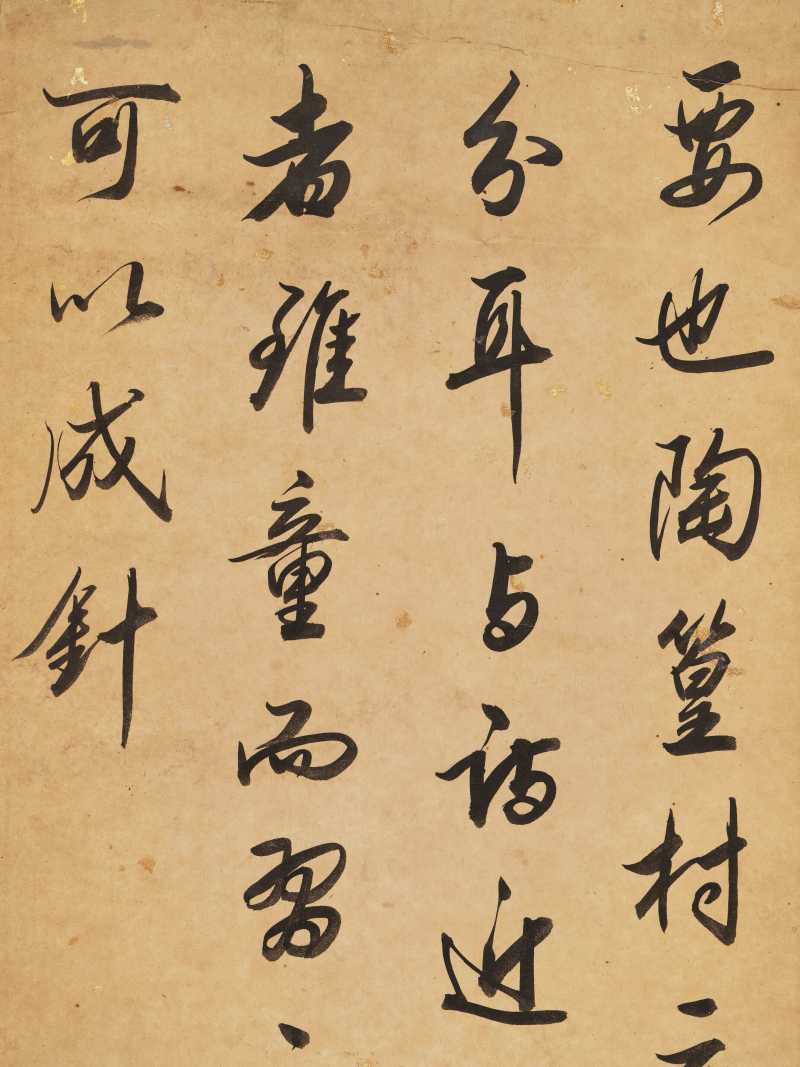 要也陶篁村
分耳与詩近
者雖童而習
可以成針